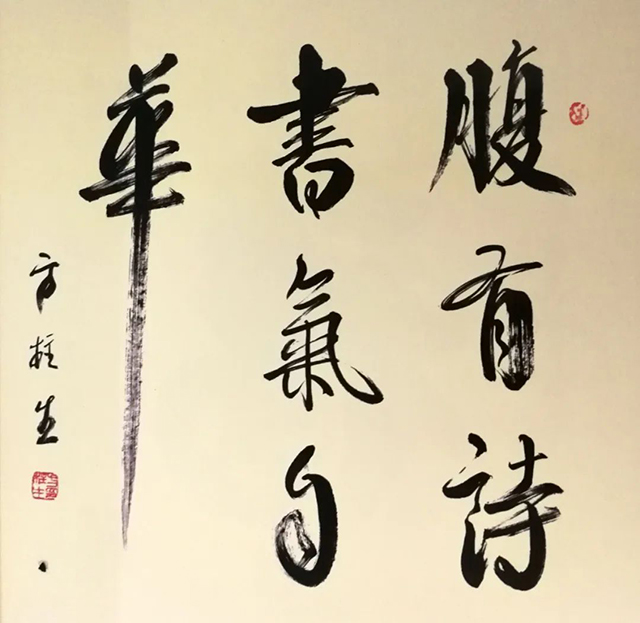 腹有詩
書氣自
華
方柱生